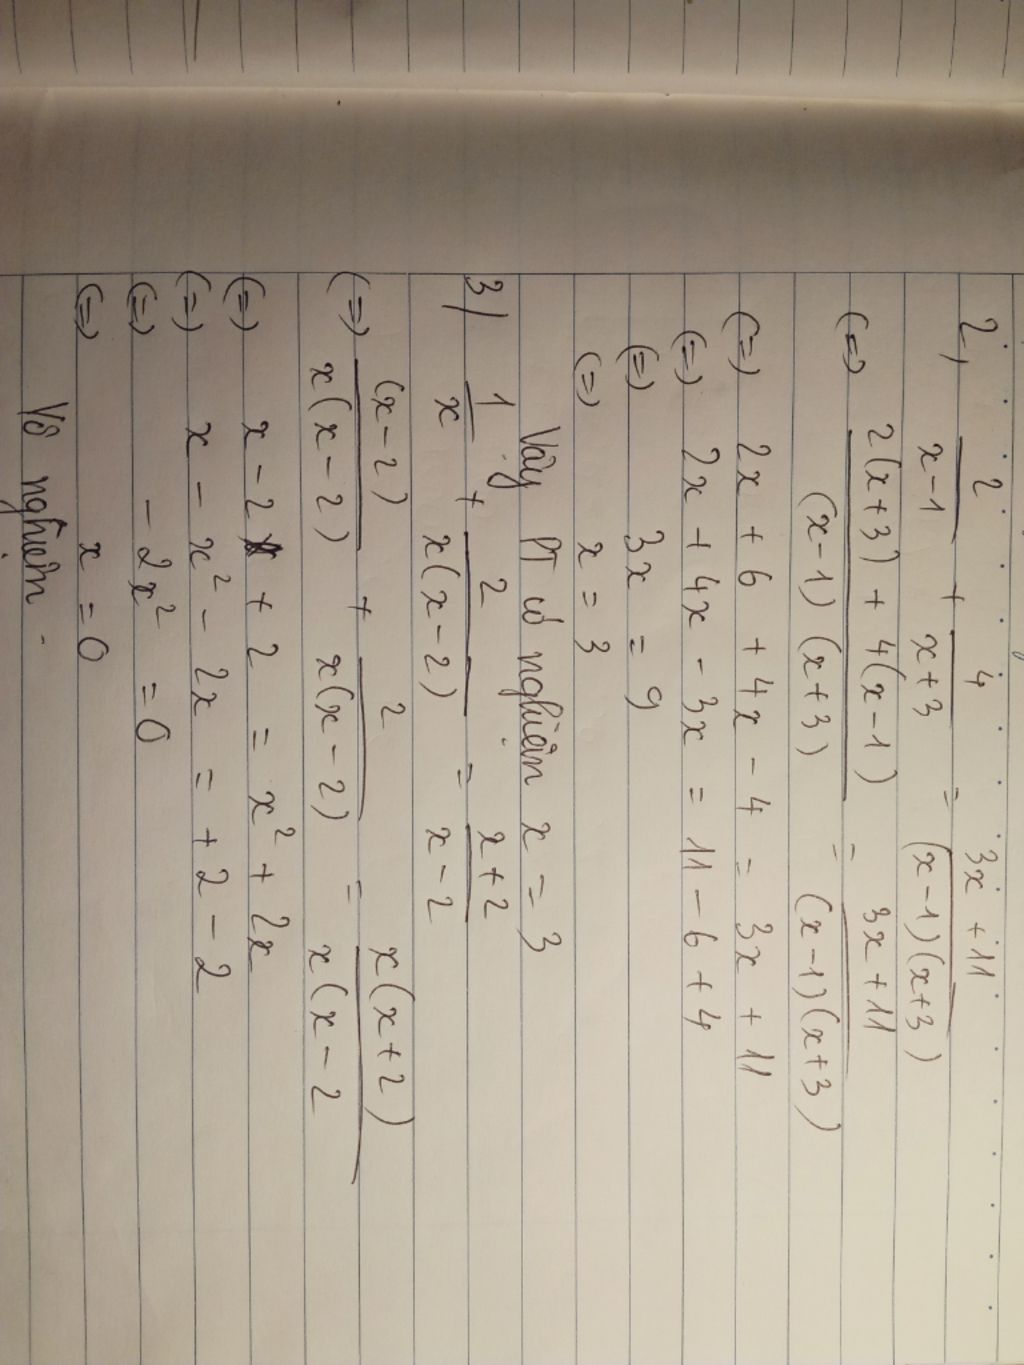 2, 2/(x-1) + 4/(x+3) = (3x+11)/((x-1)(x+3))
(=) (2(x+3) + 4(x-1))/((x-1)(x+3)) = (3x+11)/((x-1)(x+3))
(=) 2x + 6 + 4x - 4 = 3x + 11
(=) 2x + 4x - 3x = 11 - 6 + 4
(=) 3x = 9
(=) x = 3
Vậy PT có nghiệm x = 3
3/ 1/x + 2/(x(x-2)) = (x+2)/(x-2)
(=) (x-2)/(x(x-2)) + 2/(x(x-2)) = (x(x+2))/(x(x-2
(=) x - 2 + 2 = x² + 2x
(=) x - x² - 2x = +2 - 2
(=) - 2x² = 0
(=) x = 0
Vô nghiệm.